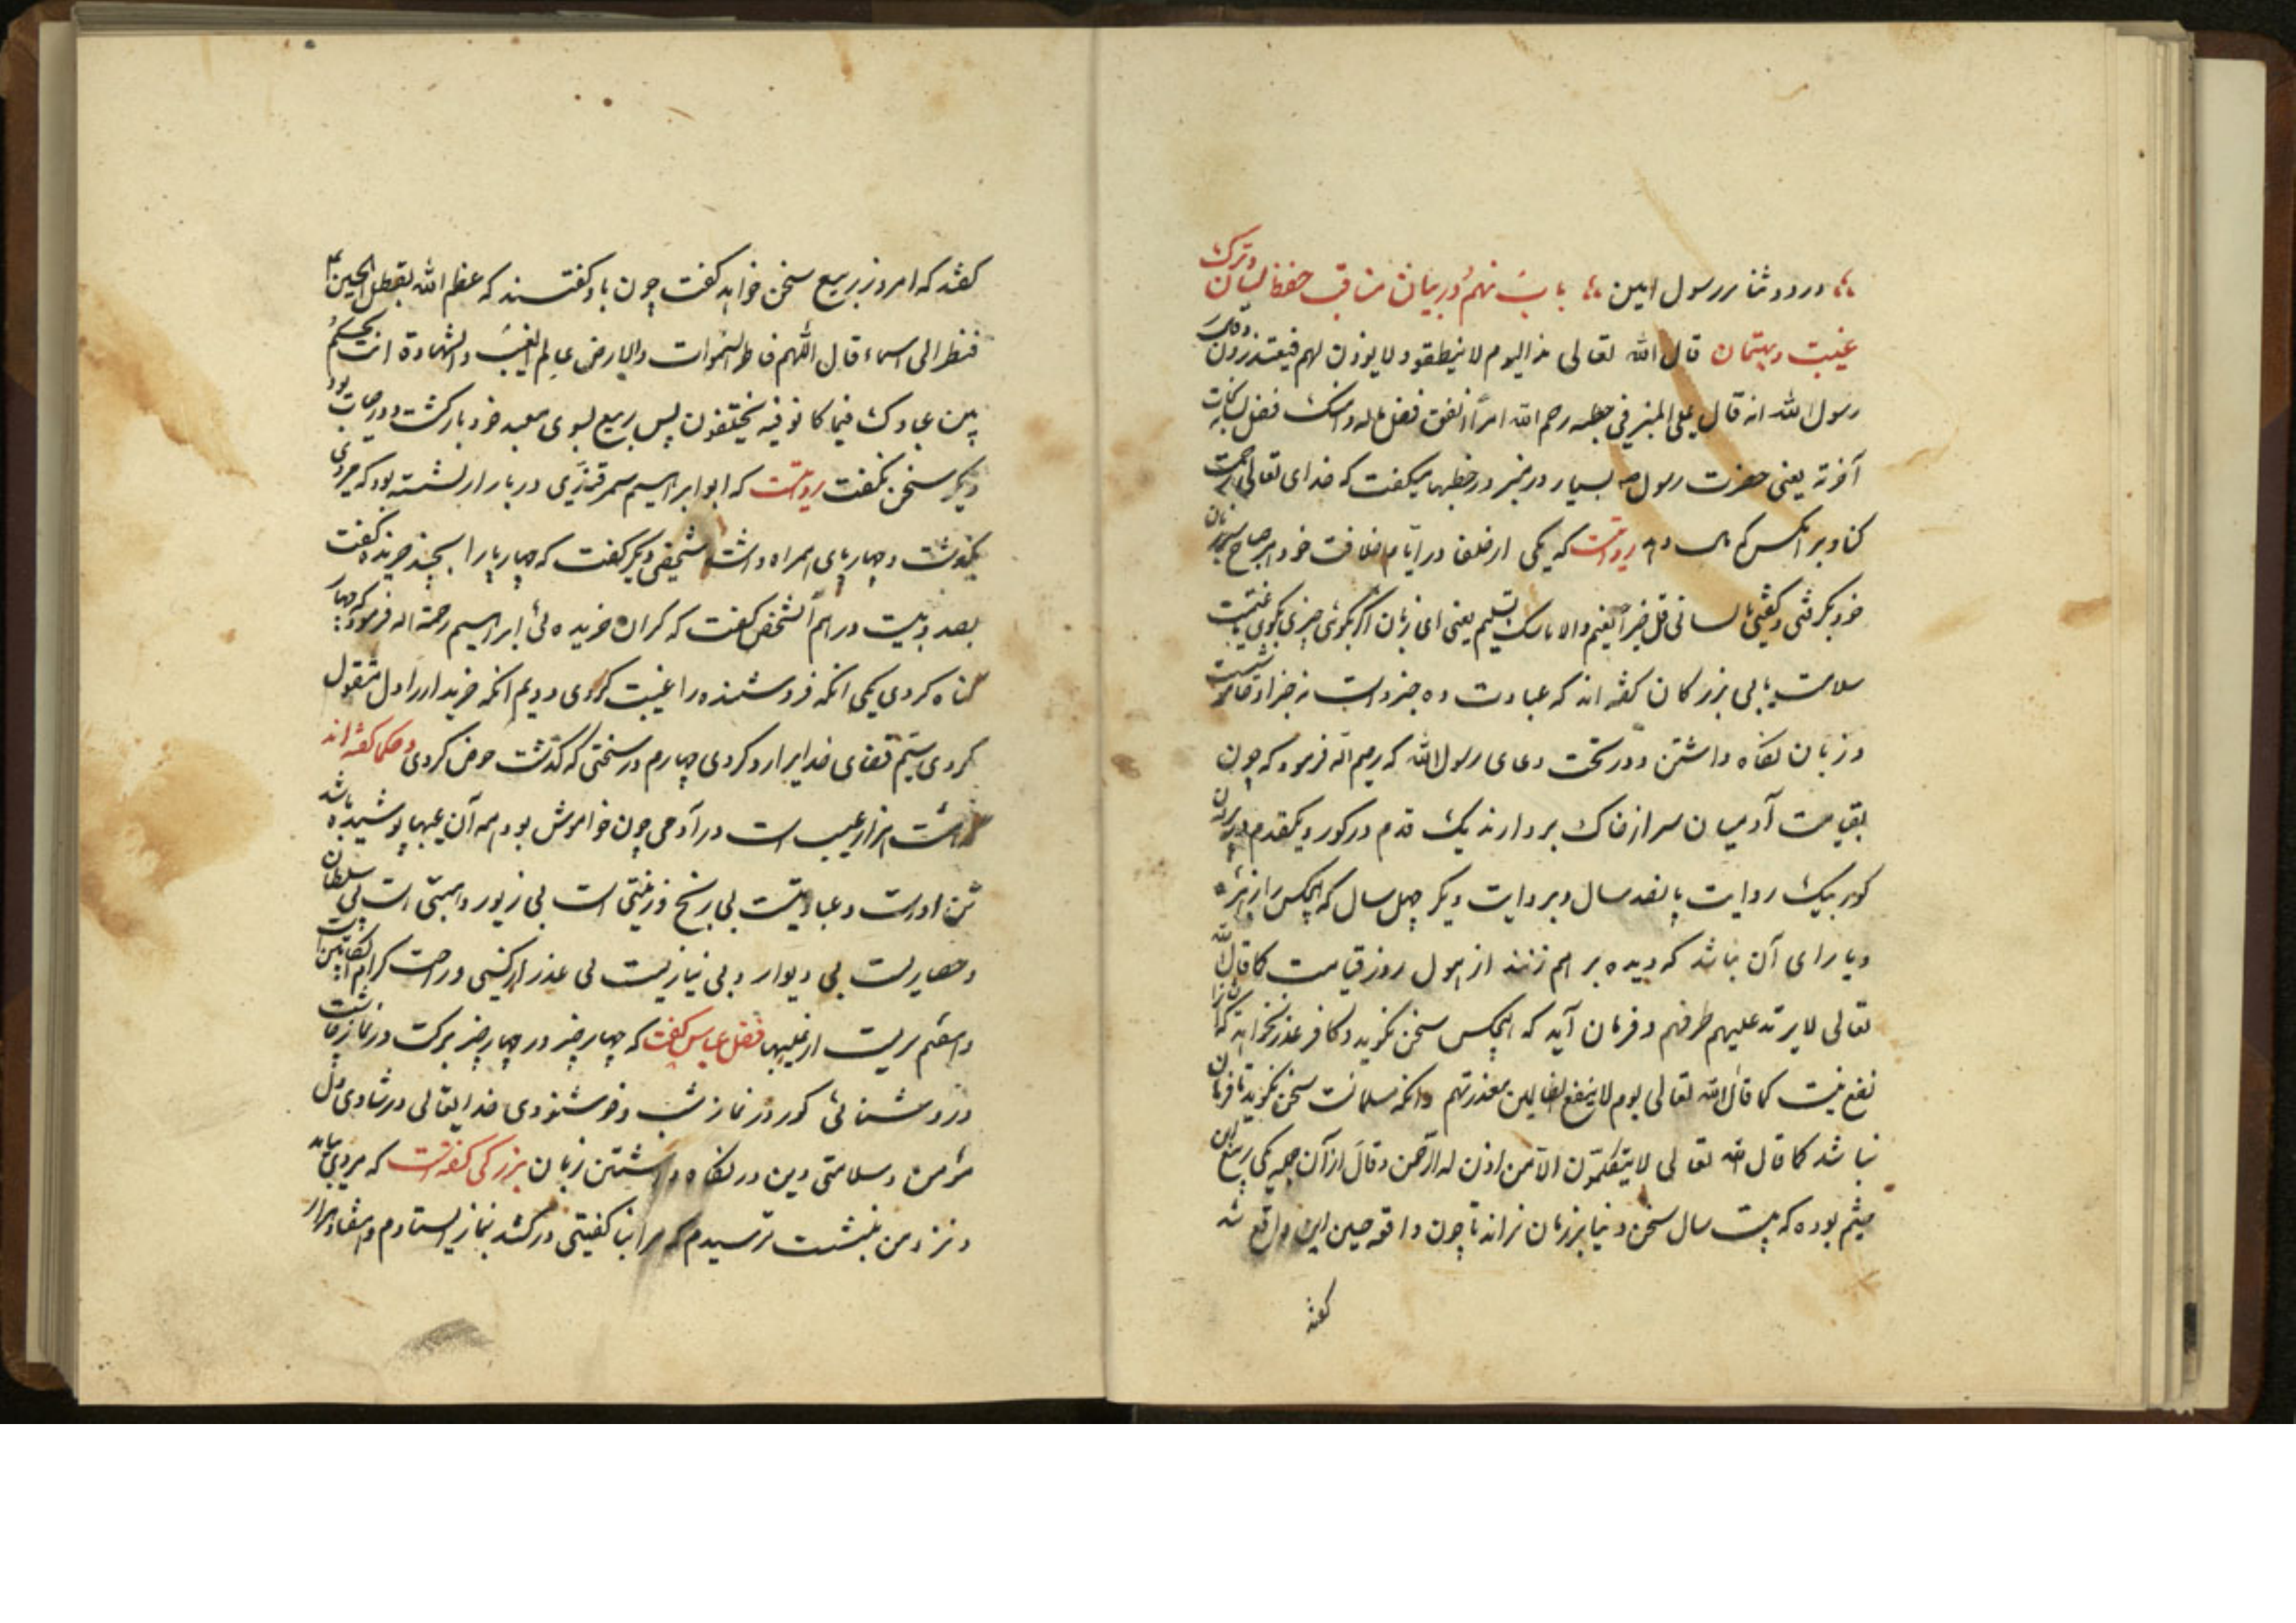 درود و ثنا بر رسول امین باب نهم در بیان مناقب حفظ لسان و ترک
غیبت و بهتان قال الله تعالی هذا الیوم لا ینطقون و لا یوذن لهم فیعتذرون و قال
رسول الله انه قال علی المنبر فی خطبه رحم الله امرأ انفق فضل ماله و امسک فضل لسانه
آفرته یعنی حضرت رسول ص بسیار در منبر در خطبها میگفت که خدای تعالی رحمت
کناد بر آنکس که روایتست که یکی از خلفا در ایام خلافت خود هر صباح سر زبان
خود بگرفتی و گفتی یا لسانی قل خیرا تغنم والا فاسکت تسلم یعنی ای زبان اگر بگوئی چیزی بگوی تا غنیمت
سلامت یابی بزرگان گفته اند که عبادت ده جزو است نه جزو از خاموشیست
و زبان نگاه داشتن و در تحت دعای رسول الله که رحم الله فرمود که چون
بقیامت آدمیان سر از خاک بردارند یک قدم در گور و یکقدم در بیرون
گور بیک روایت پانصد سال و بروایت دیگر چهل سال که هیچکس را زهره
و یارای آن نباشد که دیده بر هم زنند از هول روز قیامت کما قال الله
تعالی لا یرتد علیهم طرفهم و فرمان آید که هیچکس سخن نگوید و کافر عذر نخواهد که آنرا
نفع نیست کما قال الله تعالی یوم لا ینفع الظالمین معذرتهم و آنکه مسلمانست سخن نگوید تا فرمان
نباشد کما قال الله تعالی لا یتکلمون الا من اذن له الرحمن و قال از آن جمله یکی ربیع ابن
میثم بوده که بیست سال سخن دنیا بر زبان نراند تا چون واقعه حسین این واقع شد
گفتند
گفتند که امروز ربیع سخن خواهد گفت چون باو گفتند که عظم الله بقتل الحسین
فنظر الی السماء قال اللهم فاطر السموات والارض عالم الغیب والشهادة انت تحکم
بین عبادک فیما کانو فیه یختلفون پس ربیع بسوی معبد خود بازگشت و در حیات بود
دیگر سخن نگفت روایتست که ابو ابراهیم سمرقندی در بازار نشسته بود که مردی
میگذشت و چهارپای همراه داشت شخصی دیگر گفت که چهارپا را بچند خریدی گفت
بصد و بیست درهم آنشخص گفت که گران خریده ئی ابراهیم رحمة الله فرمود که چهار
گناه کردی یکی آنکه فروشنده را غیبت کردی دویم آنکه خریدار را دل مشغول
کردی سیّم قضای خدایرا رد کردی چهارم در سخنی که گذشت خوض کردی و حکما گفته اند
هزار عیب است در آدمی چون خاموش بود همه آن عیبها پوشیده باشد
تن اوراست و عبادتیست بی رنج و زینتی است بی زیور و هیبتی است بی سلطان
و حصاریست بی دیوار و بی نیازیست بی عذر از کسی و راحت کرام الکاتبین است
و استغفاریست از غلیبها فضل عباس گفت که چهار چیز در چهار چیز برکت در نماز چاشت
و روشنائی گور در نماز شب و خوشنودی خدایتعالی در شادی دل
مؤمن و سلامتی دین در نگاه داشتن زبان بزرگی گفته است که مردی بیامد
و نزد من بنشست ترسیدم که مرا بنا گفتنی درکشد بنماز ایستادم و هشتاد هزار